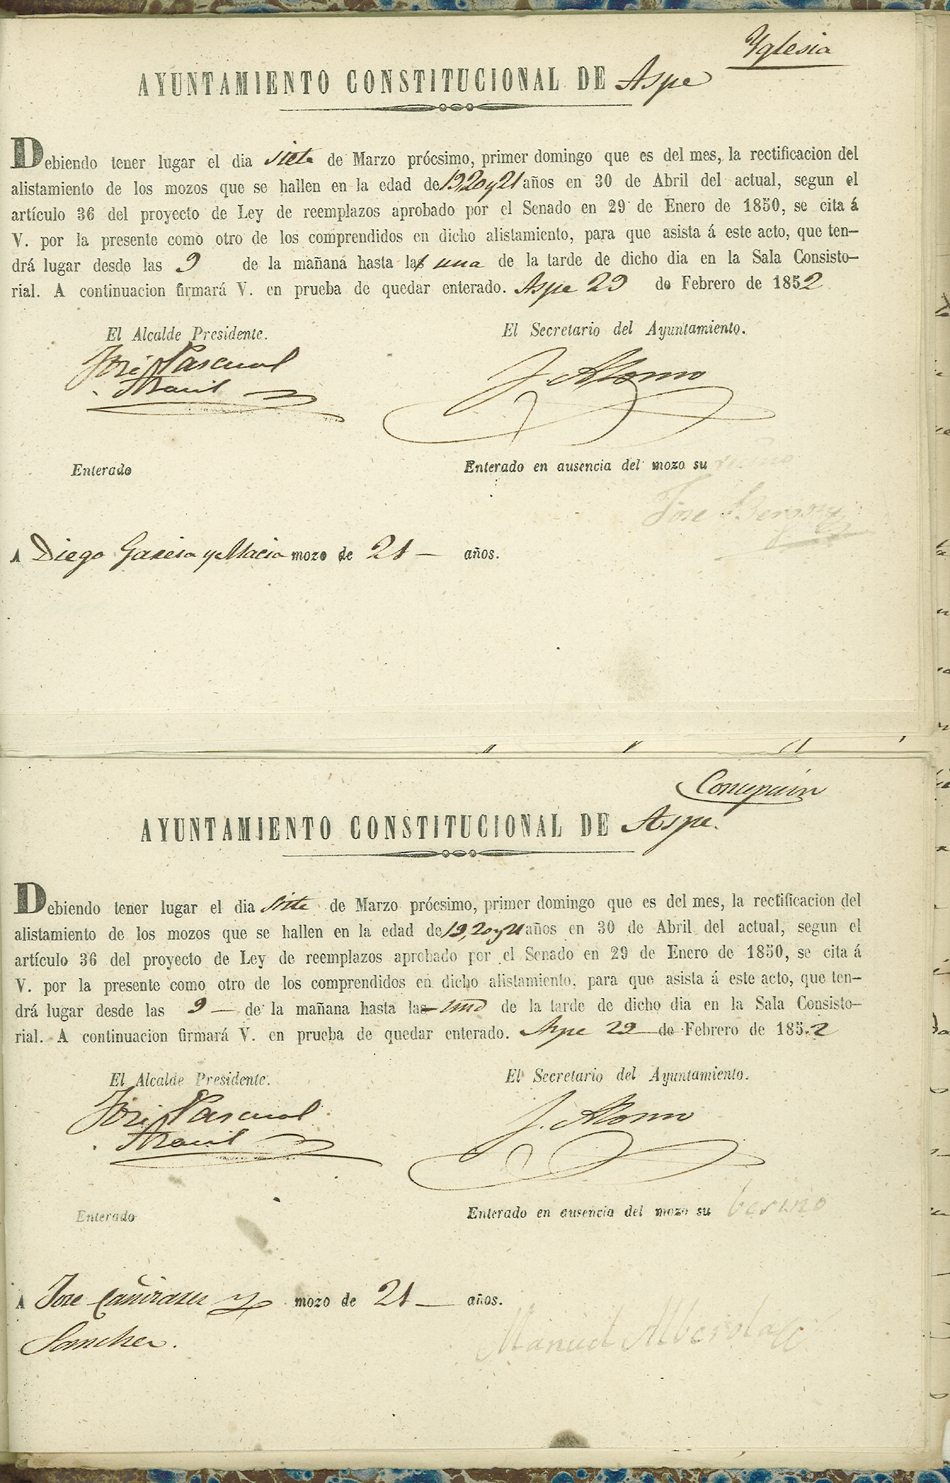 Yglesia
AYUNTAMIENTO CONSTITUCIONAL DE Aspe
Debiendo tener lugar el dia siete de Marzo prócsimo, primer domingo que es del mes, la rectificacion del
alistamiento de los mozos que se hallen en la edad de 19, 20 y 21 años en 30 de Abril del actual, segun el
artículo 36 del proyecto de Ley de reemplazos aprobado por el Senado en 29 de Enero de 1850, se cita á
V. por la presente como otro de los comprendidos en dicho alistamiento, para que asista á este acto, que ten-
drá lugar desde las 9 de la mañana hasta la una de la tarde de dicho dia en la Sala Consisto-
rial. A continuacion firmará V. en prueba de quedar enterado. Aspe 29 de Febrero de 1852
El Alcalde Presidente. El Secretario del Ayuntamiento.
José Pascual J. Alonso
Enterado Enterado en ausencia del mozo su
Jose
A Diego Garcia y Macia mozo de 21 años.
Concepcion
AYUNTAMIENTO CONSTITUCIONAL DE Aspe.
Debiendo tener lugar el dia siete de Marzo prócsimo, primer domingo que es del mes, la rectificacion del
alistamiento de los mozos que se hallen en la edad de 19, 20 y 21 años en 30 de Abril del actual, segun el
artículo 36 del proyecto de Ley de reemplazos aprobado por el Senado en 29 de Enero de 1850, se cita á
V. por la presente como otro de los comprendidos en dicho alistamiento, para que asista á este acto, que ten-
drá lugar desde las 9 — de la mañana hasta las una de la tarde de dicho dia en la Sala Consisto-
rial. A continuacion firmará V. en prueba de quedar enterado. Aspe 29 de Febrero de 1852
El Alcalde Presidente. El Secretario del Ayuntamiento.
José Pascual J. Alonso
Enterado Enterado en ausencia del mozo su besino
A Jose Cañizares y mozo de 21 — años.
Sanchez.
Manuel Alberola